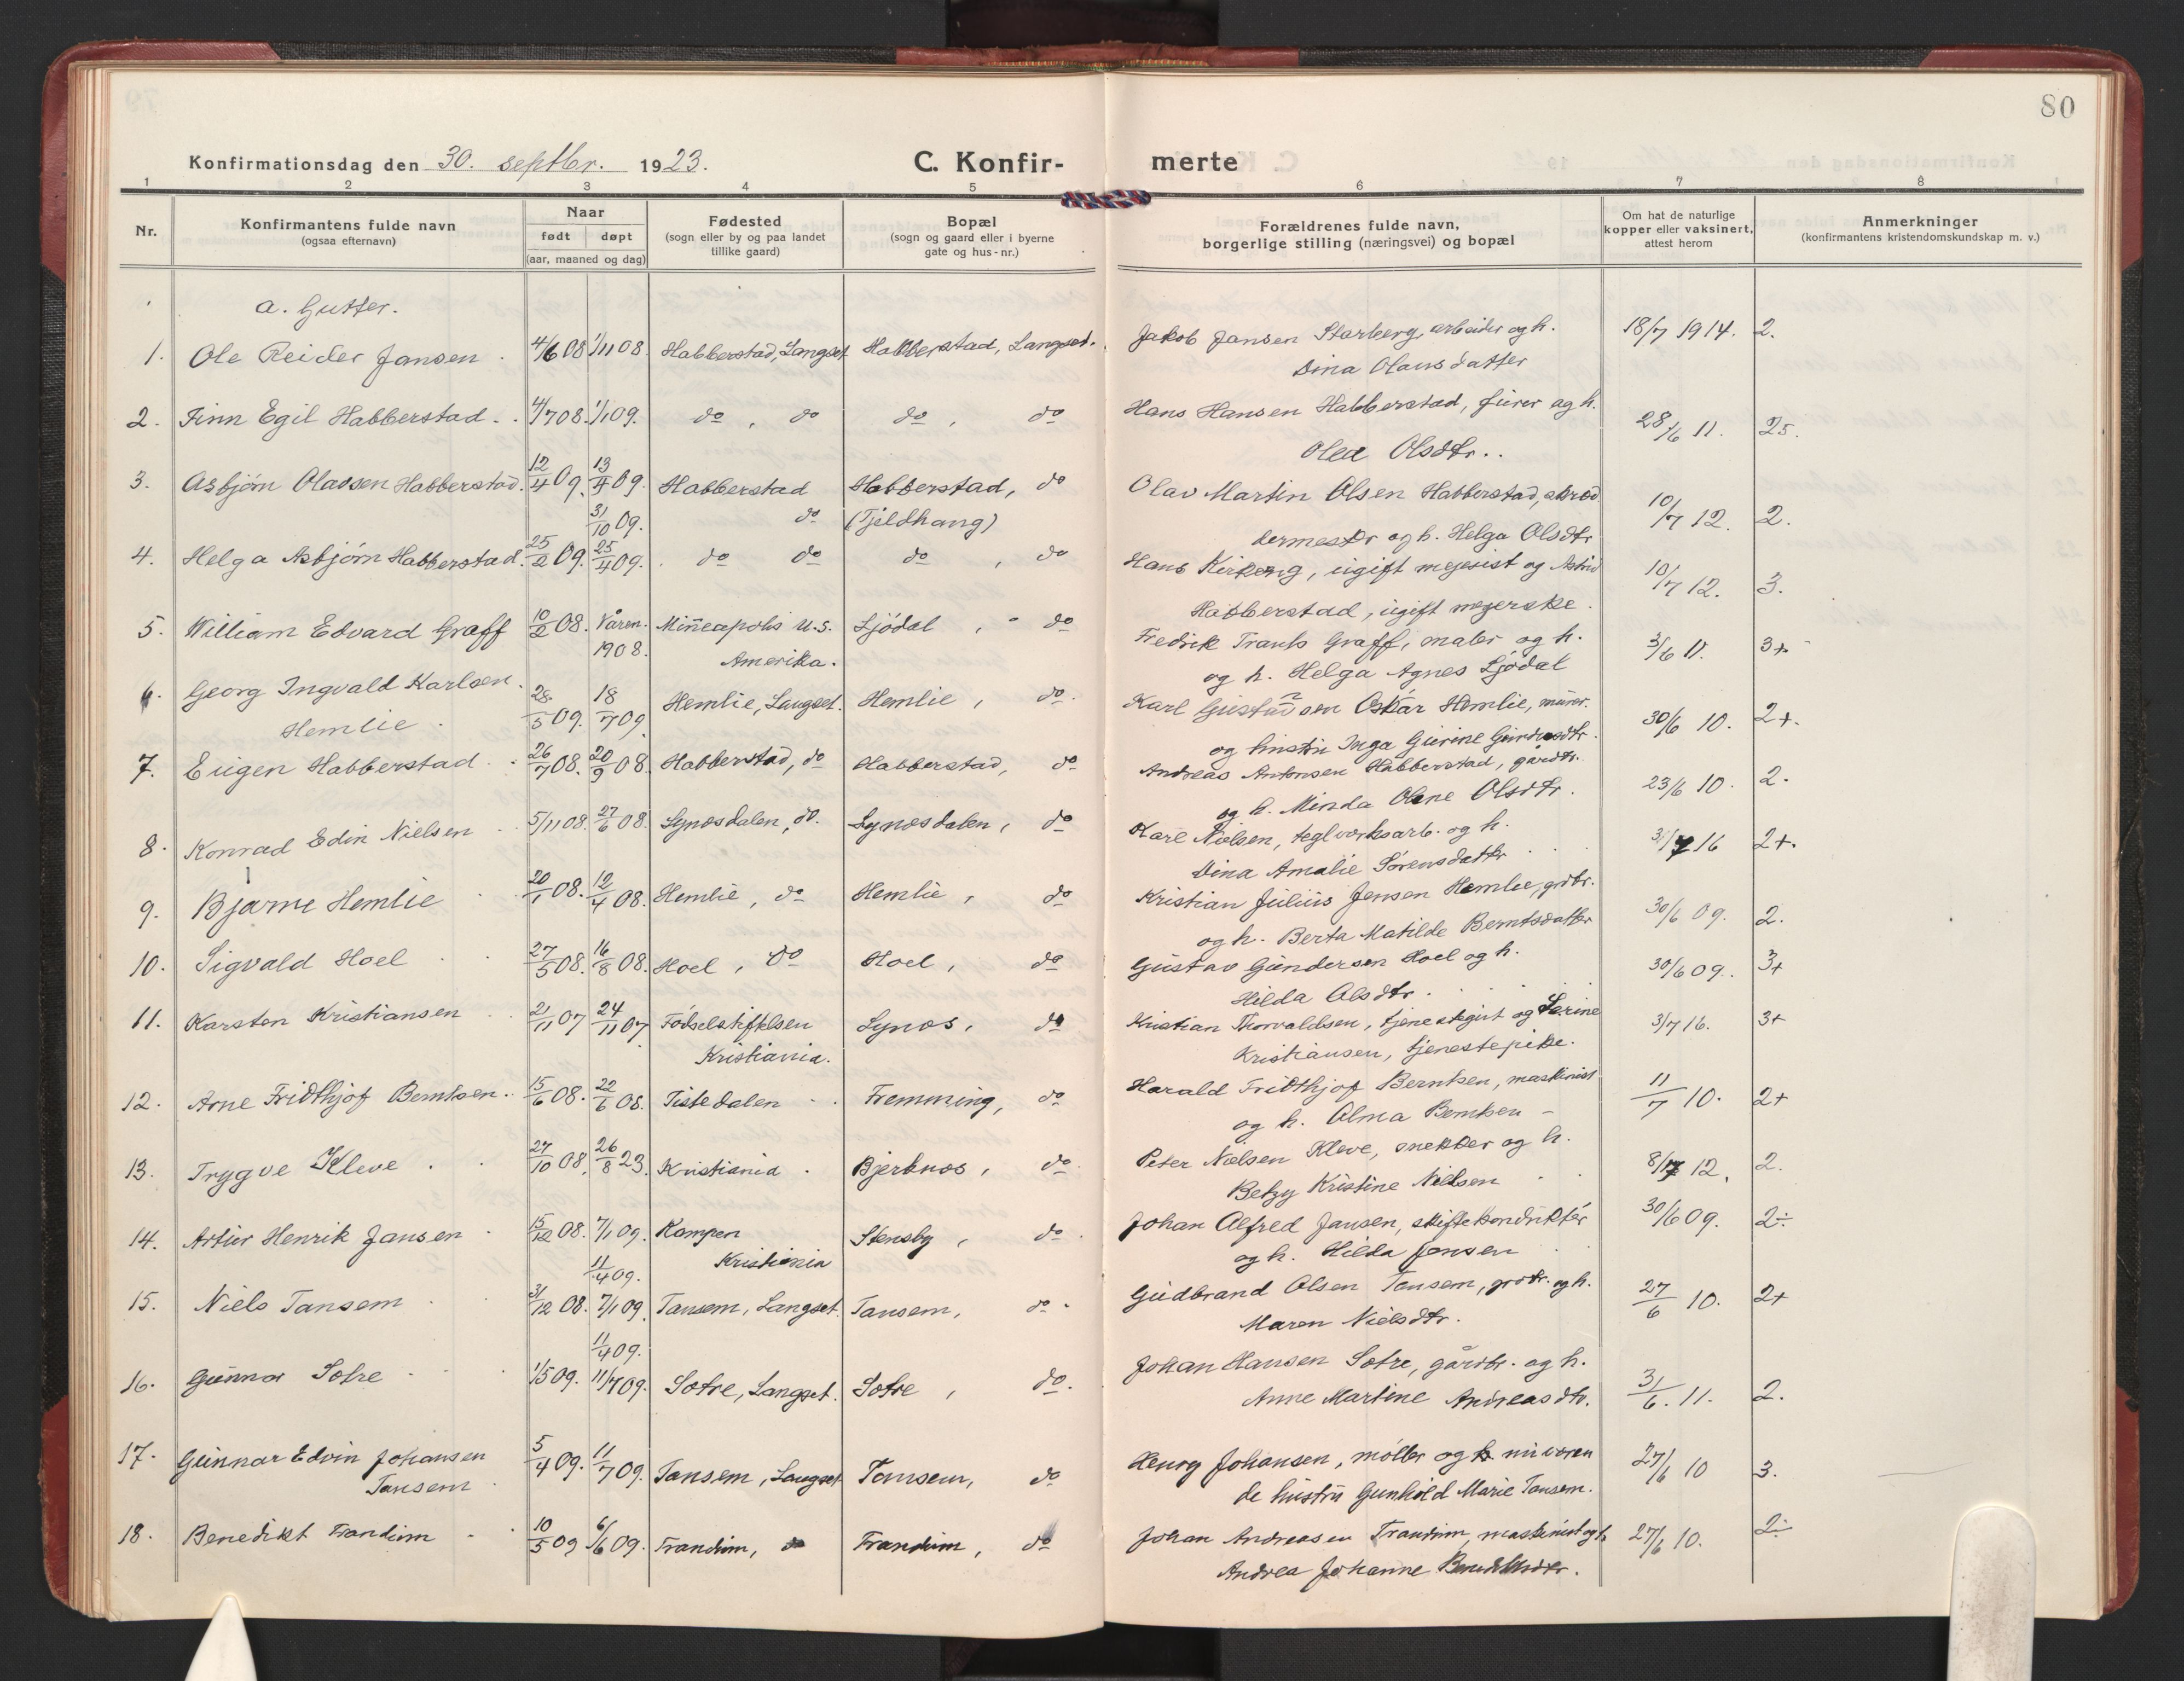 80
Konfirmationsdag den 30. septbr. 1923.
C. Konfirmerte
1 2 3 4 5 6 7 8
Nr.
Konfirmantens fulde navn
(ogsaa efternavn)
Naar
født døpt
(aar, maaned og dag)
Fødested
(sogn eller by og paa landet
tillike gaard)
Bopæl
(sogn og gaard eller i byerne
gate og hus-nr.)
Forældrenes fulde navn,
borgerlige stilling (næringsvei) og bopæl
Om hat de naturlige
kopper eller vaksinert,
attest herom
Anmerkninger
(konfirmantens kristendomskundskap m. v.)
a. Gutter.
1. Ole Reider Jansen 4/6 08 1/11 08. Habberstad, Langset Habberstad, Langset. Jakob Jansen Starberg, arbeider og h. 18/7 1914. 2.
Dina Olausdatter
2. Finn Egil Habberstad 4/7 08. 1/1 09. do, do do, do Hans Hansen Habberstad, furer og h. 28/6 11. 25.
Olea Olsdtr.
3. Asbjørn Olavsen Habberstad. 12/4 09. 13/4 09. Habberstad Habberstad, do Olav Martin Olsen Habberstad, skred 10/7 12. 2.
31/10 09. do (Tjeldhang)
dermestr og h. Helga Olsdtr
4. Helga Asbjørn Habberstad. 25/2 09. 25/4 09. do do do, do Hans Kirkeng, ugift mejerist og Astrid 10/7 12. 3.
Habberstad, ugift mejerske.
5. William Edvard Graff 10/2 08. Våren Mineapolis U.S. Ljødal, do Fredrik Trants Graff, maler og h. 3/6 11. 3+
1908. Amerika.
og h. Helga Agnes Ljødal
6. Georg Ingvald Karlsen 28/5 09. 18/7 09. Hemlie, Langset. Hemlie, do. Karl Gustavsen Oskar Hemlie, murer. 30/6 10. 2+.
Hemlie
og hustru Inga Gurine Gundersdtr.
7. Eugen Habberstad 26/7 08. 20/9 08. Habberstad, do Habberstad, do Andreas Antonsen Habberstad, gårdbr. 23/6 10. 2.
og h. Minda Oline Olsdtr.
8. Konrad Edin Nielsen 5/11 08. 27/6 08. Lynesdalen, do. Lynesdalen, do Kare Nielsen, teglverksarb. og h. 3/7 16 2+.
Dina Amalie Sørensdattr
9. Bjarne Hemlie 20/1 08. 12/4 08. Hemlie, do Hemlie, do Kristian Julius Jensen Hemlie, grdbr. 30/6 09. 2.
og h. Berta Matilde Berntsdatter
10. Sigvald Hoel 27/5 08. 16/8 08. Hoel, do Hoel, do Gustav Gundersen Hoel og h. 30/6 09. 3+
Hilda Olsdtr.
11. Karsten Kristiansen 21/11 07 24/11 07 Fødselstiftelsen Lynes, do Kristian Thorvaldsen, tjenestegut og Serine 3/7 16. 3+
Kristiania.
Kristiansen, tjenestepike.
12. Arne Fridthjof Berntsen. 15/6 08. 22/6 08. Tistedalen Fremming, do Harald Fridthjof Berntsen, maskinist 11/7 10. 2+
og h. Alma Berntsen
13. Trygve Kleve 27/10 08. 26/8 23. Kristiania Bjerknes, do. Peter Nielsen Kleve, snekker og h. 8/7 12. 2.
Betzy Kristine Nielsen
14. Artur Henrik Jansen 15/12 08. 7/1 09. Kampen Stensby, do. Johan Alfred Jansen, skiftekonduktør 30/6 09. 2÷
11/4 09. Kristiania
og h. Hilda Jensen
15. Niels Tansem 31/12 08. 7/1 09 Tansem, Langset Tansem, do. Gudbrand Olsen Tansem, grdbr. og h. 27/6 10. 2+
11/4 09.
Maren Nielsdtr.
16. Gunnar Sotre 1/5 09. 11/7 09. Sotre, Langset. Sotre, do. Johan Hansen Sotre, gårdbr. og h. 31/6 11. 2.
Anne Martine Andreasdtr.
17. Gunnar Edvin Johansen 5/4 09. 11/7 09. Tansem, Langset Tansem, do Henry Johansen, møller og nuværen 27/6 10 3.
Tansem
de hustru Gunhild Marie Tansem.
18. Benedikt Trandum 10/5 09 6/6 09. Trandum, do Trandum, do Johan Andreasen Trandum, maskinist og h 27/6 10. 2÷
Andrea Johanne Benediktsdtr.